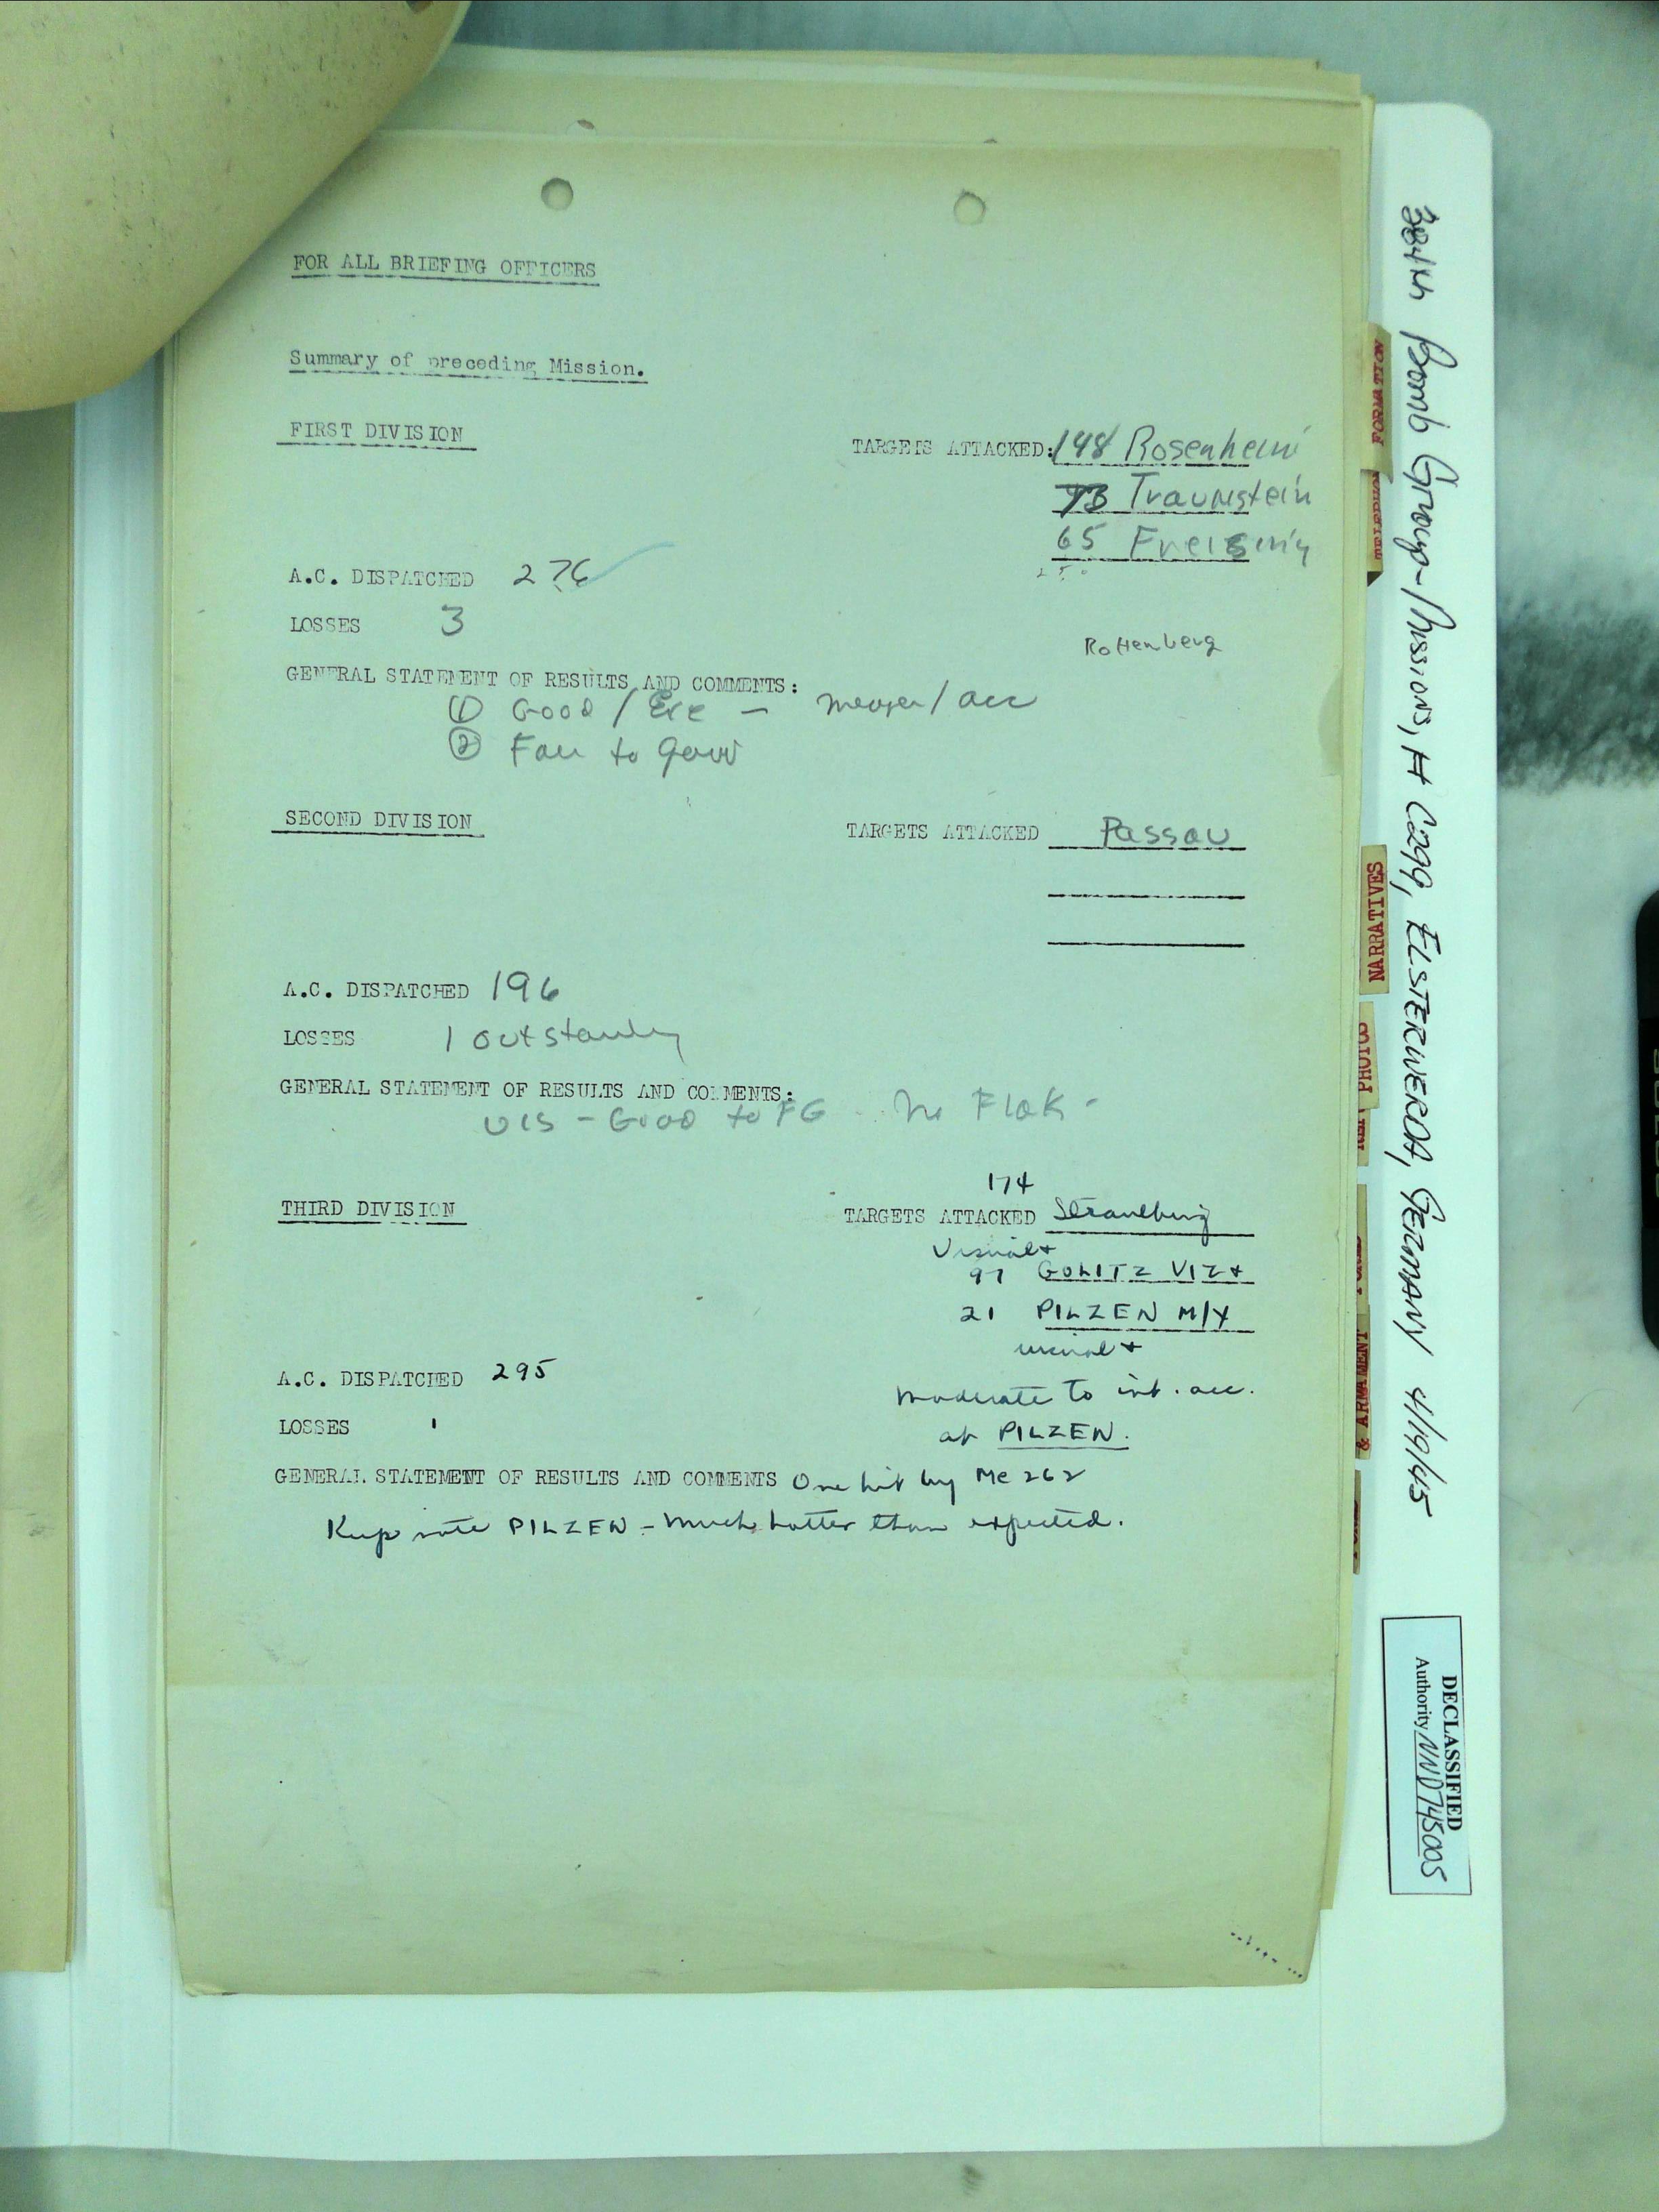 FOR ALL BRIEFING OFFICERS
Summary of preceding Mission.
FIRST DIVISION
TARGETS ATTACKED: 148 Rosenheim
73 Traunstein
65 Freising
A.C. DISPATCHED 276
LOSSES 3
Rottenberg
GENERAL STATEMENT OF RESULTS AND COMMENTS:
① Good / Exe - meager / acc
② Fair to good
SECOND DIVISION
TARGETS ATTACKED Passau
A.C. DISPATCHED 196
LOSSES 1 outstanding
GENERAL STATEMENT OF RESULTS AND COMMENTS:
VIS - Good to FG no Flak -
174
THIRD DIVISION
TARGETS ATTACKED Straubing
Visual +
97 GOLITZ VIZ +
21 PILZEN M/Y
visual +
A.C. DISPATCHED 295
moderate to int. acc.
LOSSES 1
at PILZEN.
GENERAL STATEMENT OF RESULTS AND COMMENTS One hit by Me 262
Keep note PILZEN - Much hotter than expected.
384th Bomb Group - Missions, # C299, ELSTERWERDA, GERMANY 4/19/45
FORMATION
NARRATIVES
PHOTO
& ARMAMENT
DECLASSIFIED
Authority NND745005